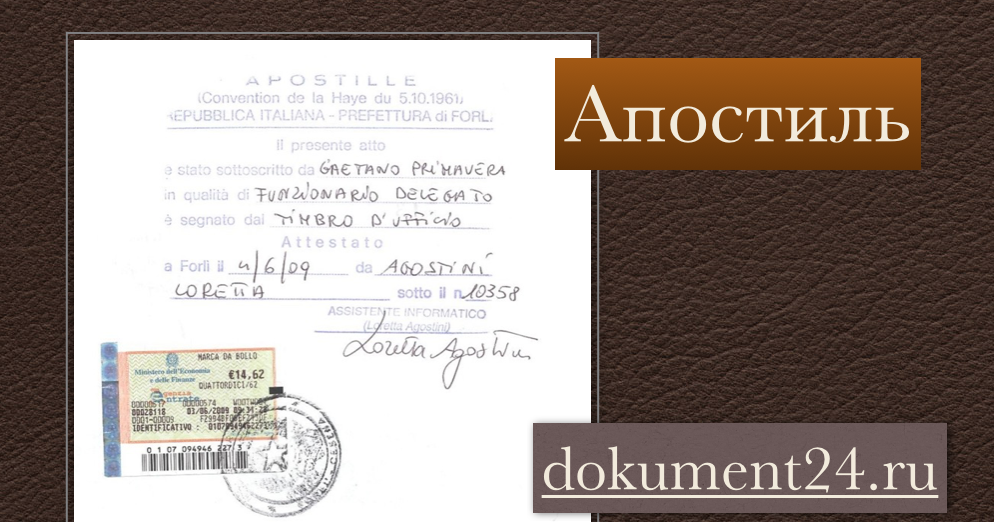 APOSTILLE
(Convention de la Haye du 5.10.1961)
REPUBBLICA ITALIANA - PREFETTURA di FORLI
Il presente atto
e stato sottoscritto da GAETANO PRIMAVERA
in qualità di FUNZIONARIO DELEGATO
è segnato dal TIMBRO D'UFFICIO
Attestato
a Forlì il 4/6/09 da AGOSTINI
LORETTA sotto il n. 10358
ASSISTENTE INFORMATICO
(Loretta Agostini)
Loretta Agostini
MARCA DA BOLLO
Ministero dell'Economia
e delle Finanze
€14,62
QUATTORDICI/62
genzia
ntrate
00028118 03/06/2009 09:31:28
0001-00009
IDENTIFICATIVO :
0 1 07 094946 227
Апостиль
dokument24.ru